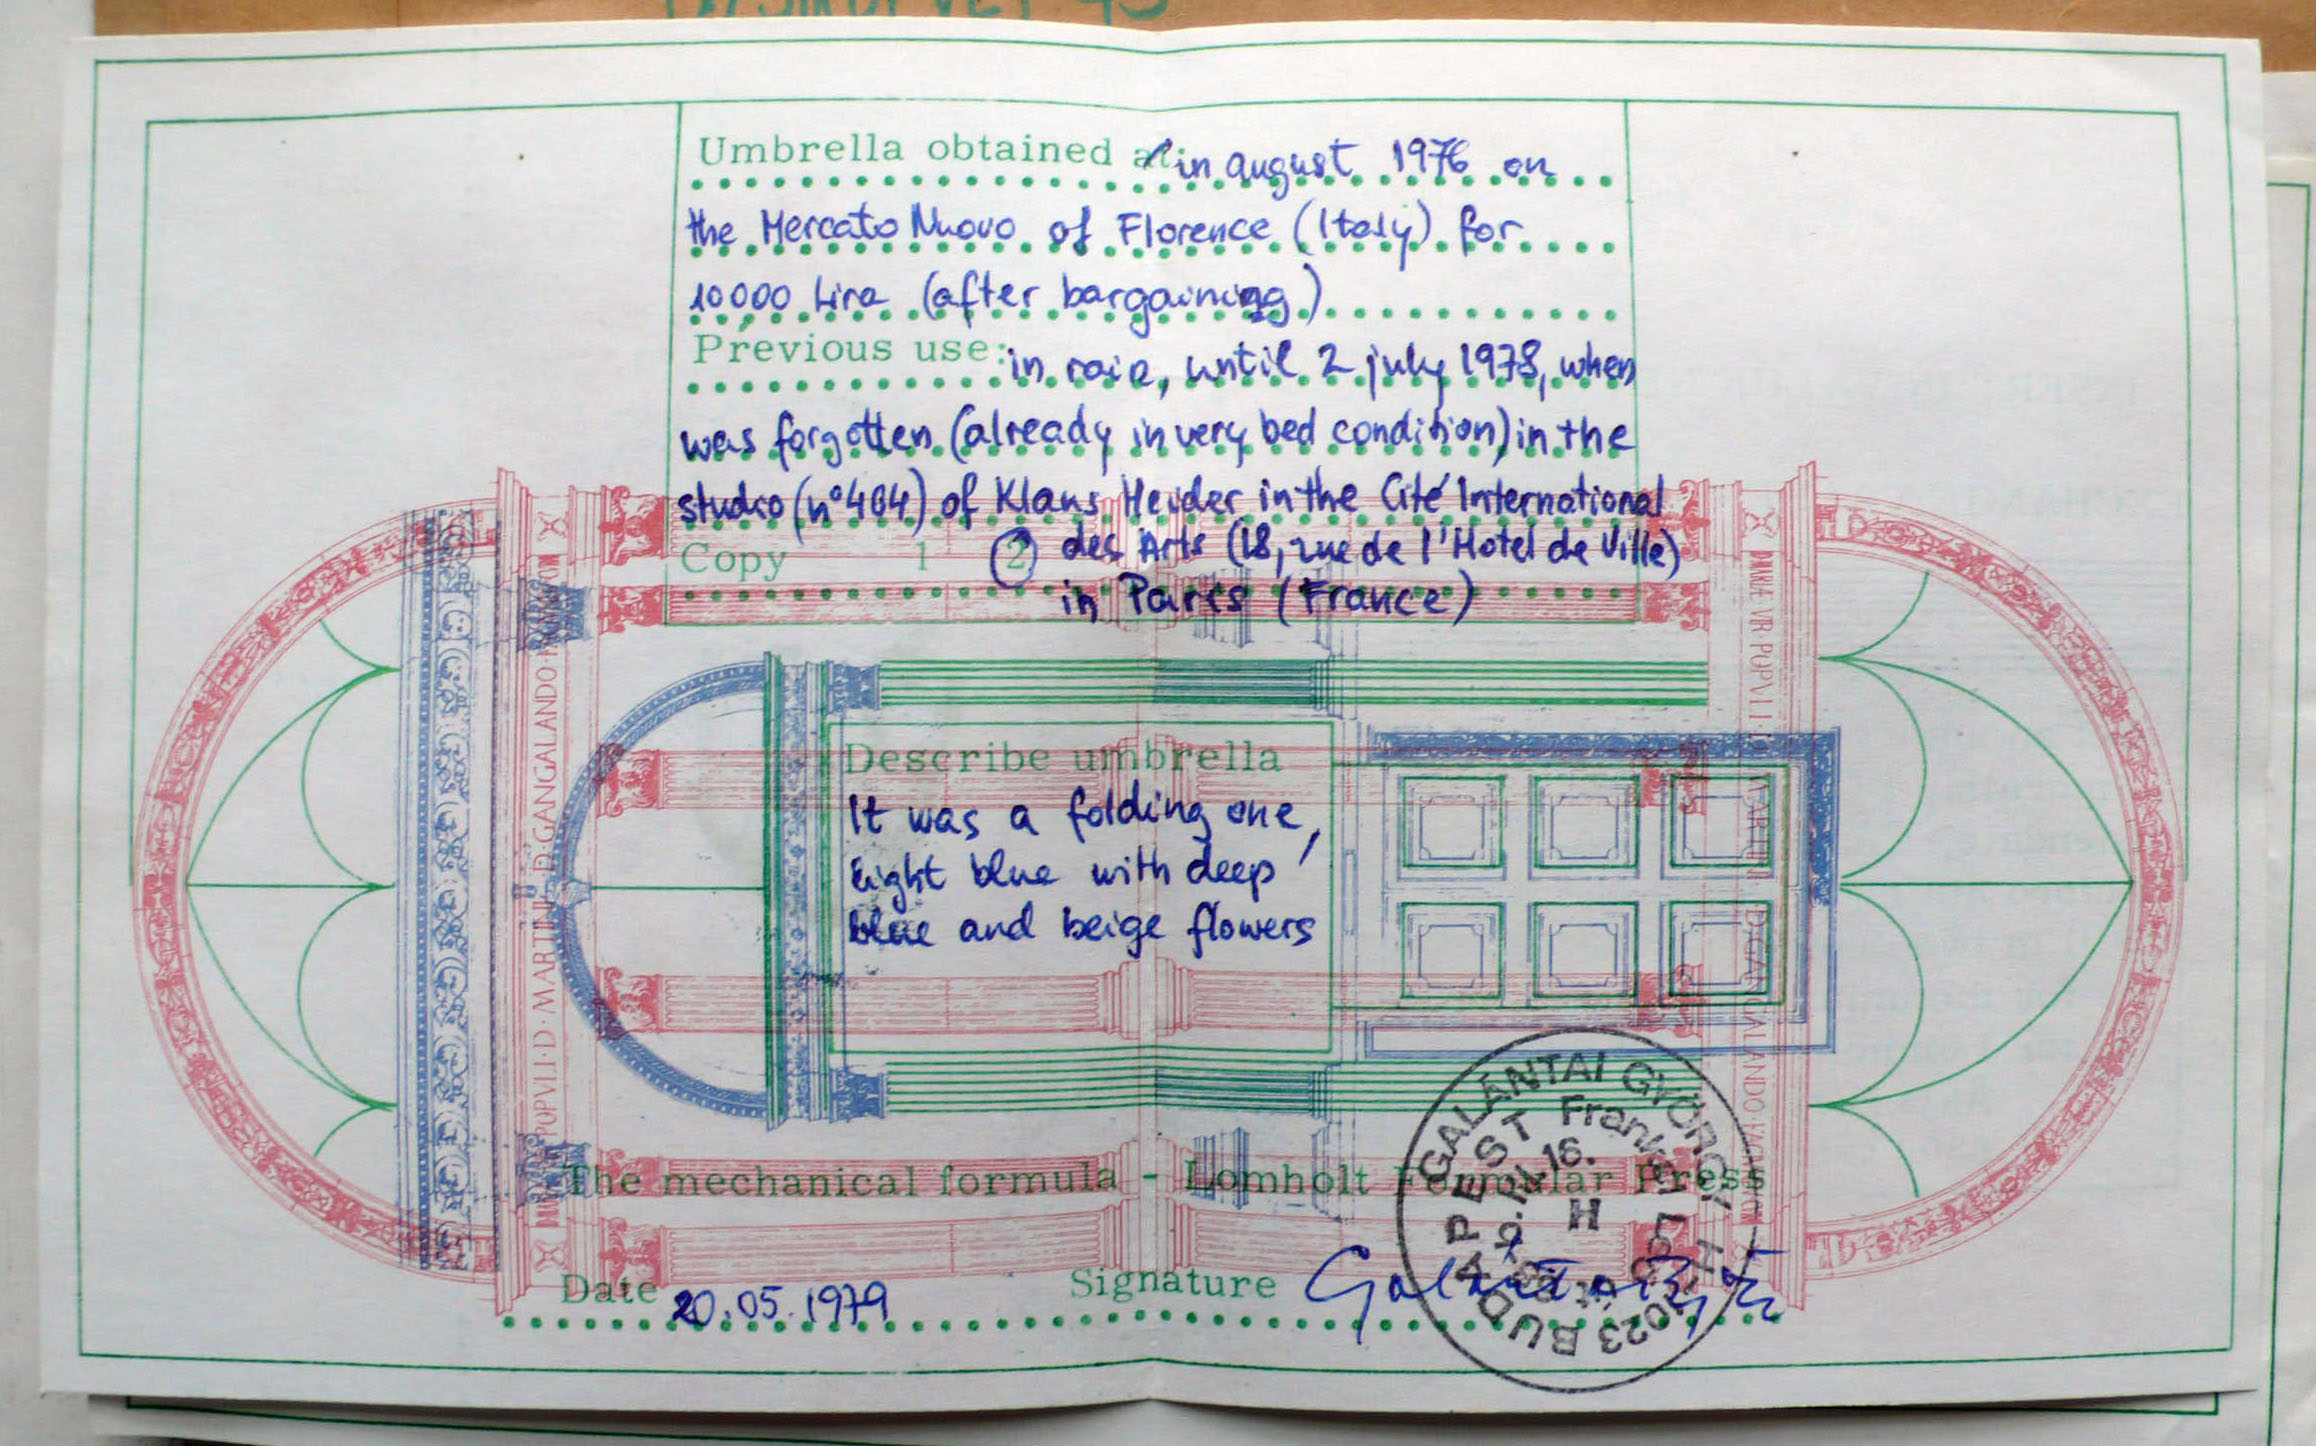 Umbrella obtained at: in august 1976 on
the Mercato Nuovo of Florence (Italy) for
10000 Lira (after bargaining)
Previous use: in rain, until 2 july 1978, when
was forgotten (already in very bed condition) in the
studio (n°404) of Klaus Heider in the Cité International
Copy 1 2 des Arts (18, rue de l'Hotel de Ville)
in Paris (France)
Describe umbrella
It was a folding one,
light blue with deep
blue and beige flowers
The mechanical formula - Lomholt Formular Press
Date 20.05.1979 Signature
GALÁNTAI GYÖRGY
H-1023 BUDAPEST Frankel Leo út
H
POPVLI·D·MARTINI·D·GANGALANDO